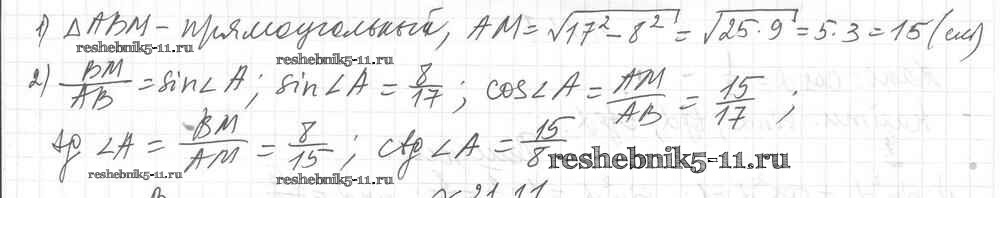 1) △ABM - прямоугольный, AM = √17² - 8² = √25 · 9 = 5 · 3 = 15 (см)
reshebnik5-11.ru reshebnik5-11.ru
2) BM/AB = sin∠A; sin∠A = 8/17; cos∠A = AM/AB = 15/17;
tg∠A = BM/AM = 8/15; ctg∠A = 15/8
reshebnik5-11.ru
reshebnik5-11.ru reshebnik5-11.ru